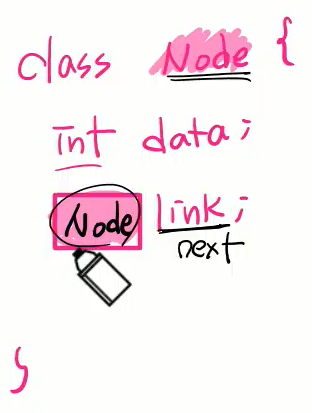 class Node {
int data;
Node link;
next
}